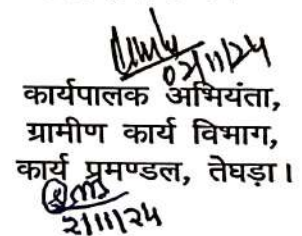 02/11/24
कार्यपालक अभियंता,
ग्रामीण कार्य विभाग,
कार्य प्रमण्डल, तेघड़ा।
2/11/24